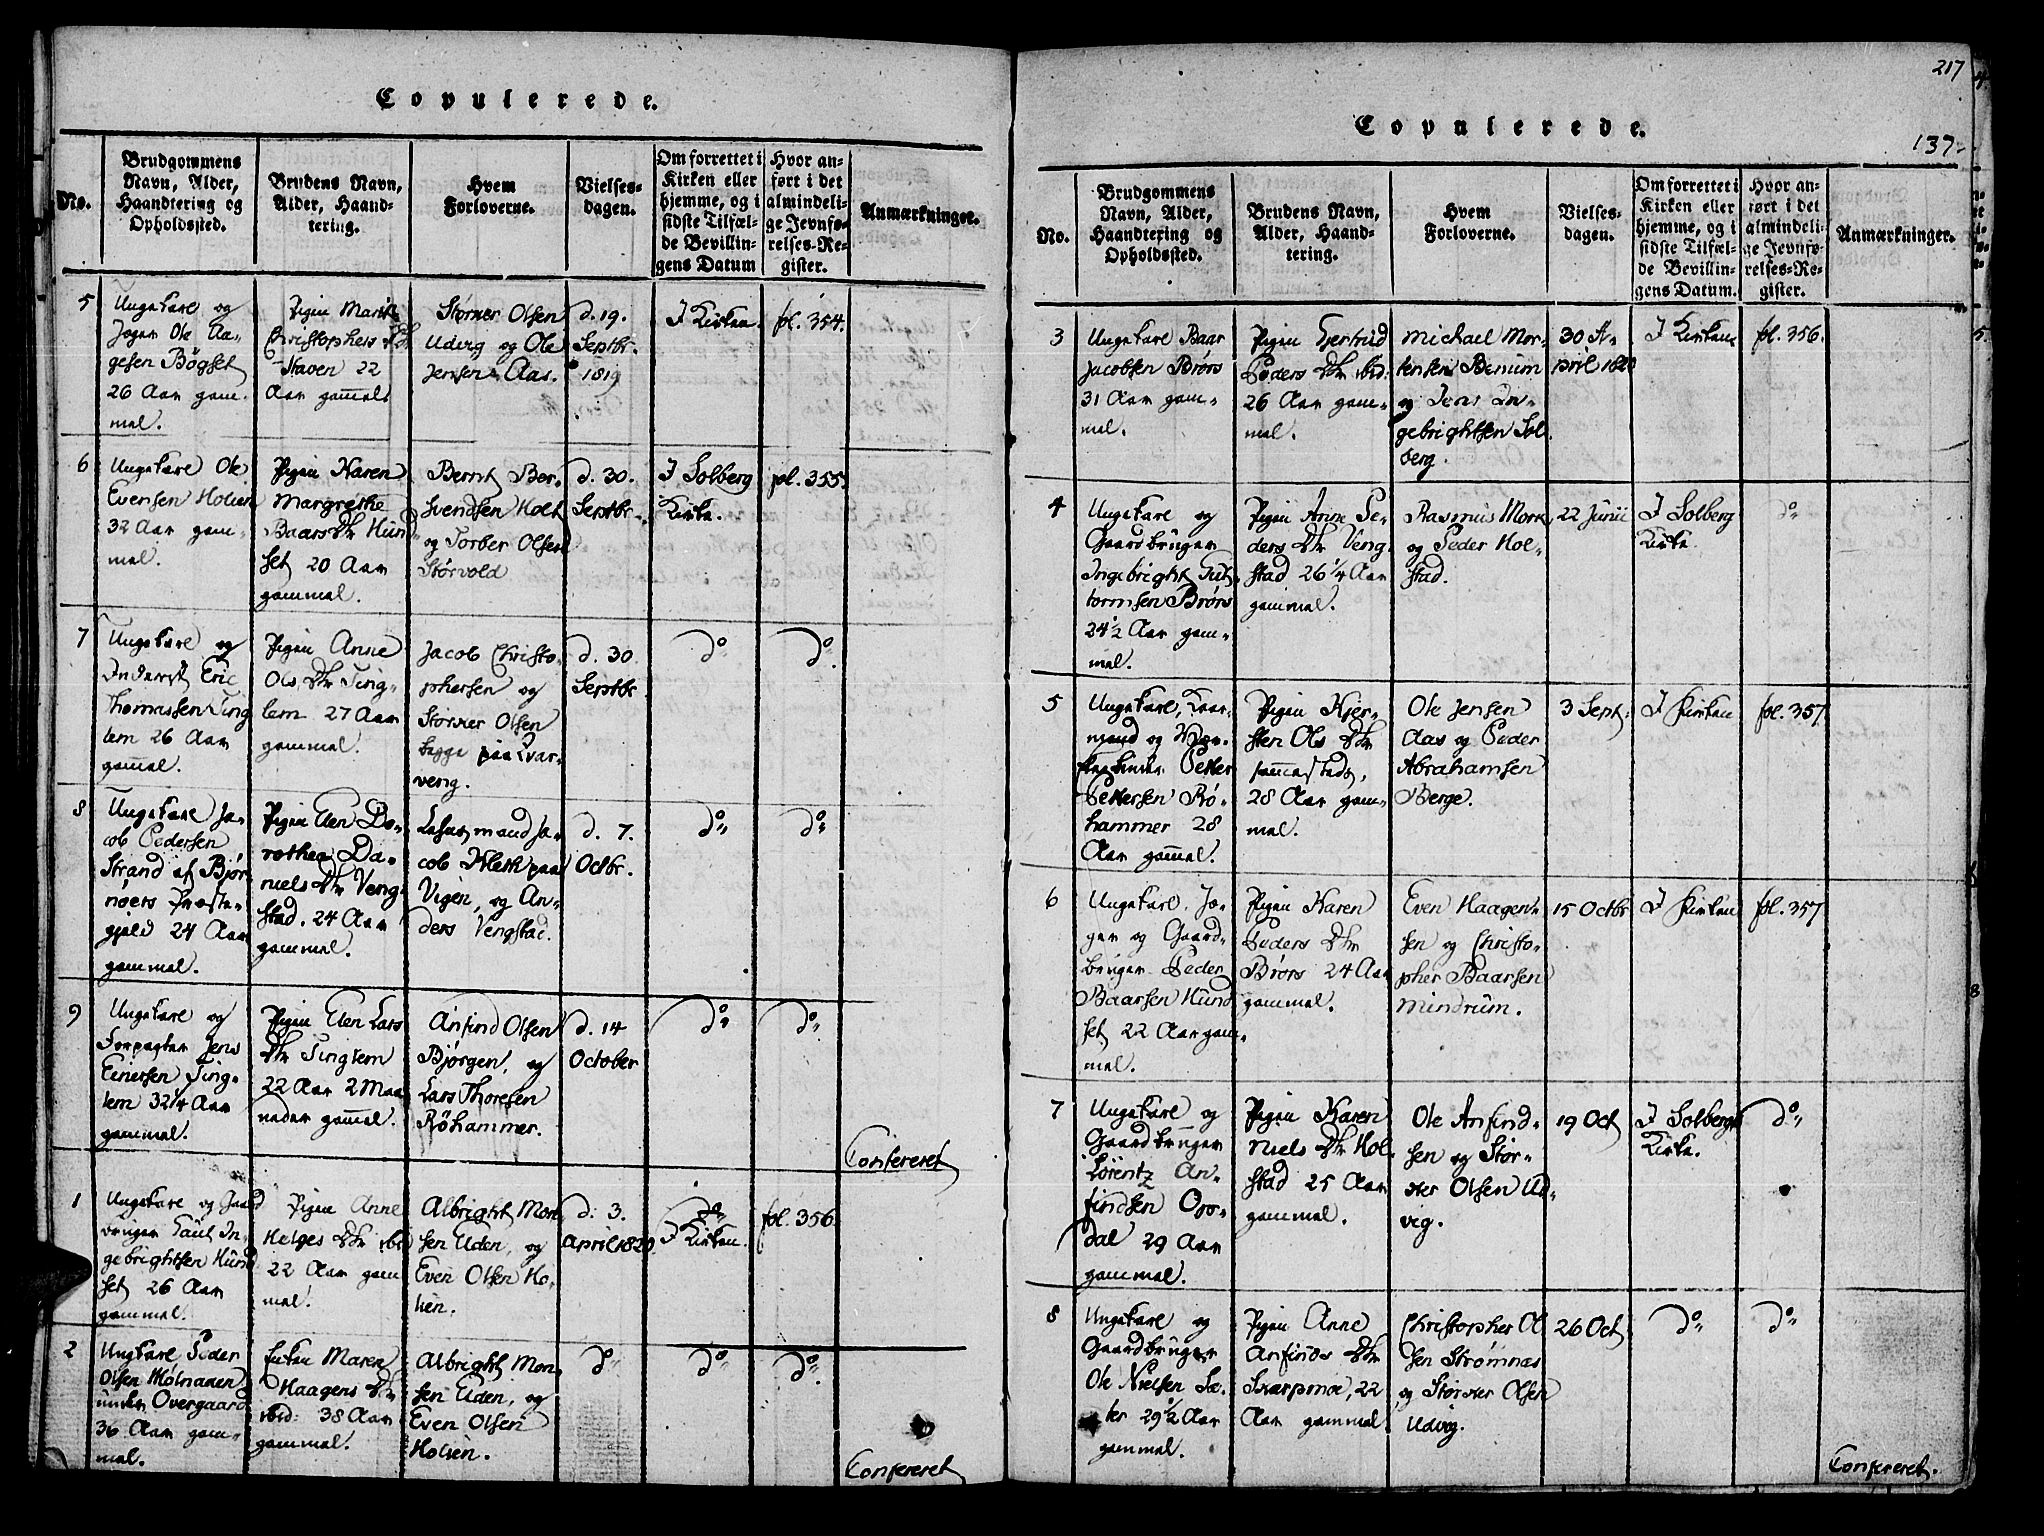 Copulerede.
No.
Brudgommens
Navn, Alder,
Haandtering og
Opholdssted.
Brudens Navn,
Alder, Haand-
tering.
Hvem
Forloverne.
Vielses-
dagen.
Om forrettet i
Kirken eller
hjemme, og i
sidste Tilfæl-
de Bevillin-
gens Datum
Hvor an-
ført i det
almindeli-
ge Jevnfø-
relses-Re-
gister.
Anmærkninger.
5
Ungekarl og
Ole Aa-
gesen Bøgset
26 Aar gam-
mel.
Pigen Marit
Christophers Dtr
Staven 22
Aar gammel.
Størker Olsen
Udvig og Ole
Jensen Aas.
d. 19.
Septbr.
1819
I Kirken.
fol. 354.
6
Ungekarl Ole
Evensen Holien
32 Aar gam-
mel.
Pigen Karen
Margrethe
Baars Dtr Hund-
set 20 Aar
gammel.
Bernt Ber-
Svendsen Holt
og Torber Olsen
Størvold
d. 30.
Septbr.
I Solberg
Kirke.
fol. 355.
7
Ungekarl og
Inderst Eric
Thomassen Ting
lem 26 Aar
gammel.
Pigen Anne
Ols Dtr Ting-
lem 27 Aar
gammel.
Jacob Christo-
phersen og
Størker Olsen
begge paa Qvar-
veng.
d. 30.
Septbr.
do
do
8
Ungekarl Ja-
cob Pedersen
Strand af Bjør-
nøers Præste-
gjeld 24 Aar
gammel.
Pigen Elen Do-
rothea Da-
niels Dtr Veng-
stad. 24 Aar
gammel.
mand Ja-
cob Kleth paa
Vigen, og An-
ders Vengstad.
d. 7.
Octbr.
do
do
9
Ungekarl og
Forpagter Jens
Einersen Ting-
lem 32 1/4 Aar
gammel.
Pigen Elen Lars
Dtr Tinglem
22 Aar 2 Maa
neder gammel.
Anfind Olsen
Bjørgen, og
Lars Thoresen
Røhammer.
d. 14
October
do
do
Confereret
1
Ungekarl og Gaard
bruger Paul In-
gebrightsen Hund
set 26 Aar
gammel.
Pigen Anne
Helges Dtr ibid
22 Aar gam
mel.
Albright Mon
sen Elden, og
Even Olsen Ho-
lien.
d. 3.
April 1820
I Kirken.
fol. 356.
2
Ungkarl Peder
Olsen Mølnanen
under Overgaard
36 Aar gam-
mel.
Enken Maren
Haagens Dtr
ibid: 38 Aar
gammel.
Albright Mon
sen Elden, og
Even Olsen
Holien.
do
do
do
Confereret
217
Copulerede.
137
No.
Brudgommens
Navn, Alder,
Haandtering og
Opholdssted.
Brudens Navn,
Alder, Haand-
tering.
Hvem
Forloverne.
Vielses-
dagen.
Om forrettet i
Kirken eller
hjemme, og i
sidste Tilfæl-
de Bevillin-
gens Datum.
Hvor an-
ført i det
almindeli-
ge Jevnfø-
relses-Re-
gister.
Anmærkninger.
3
Ungekarl Baar
Jacobsen Brørs
31 Aar gam-
mel.
Pigen Gjertrud
Peders Dtr ibid:
26 Aar gam-
mel.
Michael Mor-
tensen Benum
og Jens In-
gebrightsen Sol
berg.
30 A-
pril 1820
I Kirken
fol. 356.
4
Ungekarl og
Gaardbruger
Ingebright Gut
tormsen Brørs
24 1/2 Aar gam-
mel.
Pigen Anne Pe-
ders Dtr Veng
stad 26 1/4 Aar
gammel.
Rasmus Mork
og Peder Hol-
stad.
22 Junii
I Solberg
Kirke.
do
5
Ungekarl,
mand og
Petter
Pettersen Rø-
hammer 28
Aar gammel.
Pigen Kjer-
sten Ols Dtr
sammesteds,
28 Aar gam-
mel.
Ole Jensen
Aas og Peder
Abrahamsen
Berge.
3 Sept:
I Kirken
fol. 357.
6
Ungekarl, Jæ-
ger og Gaard-
bruger Peder
Baarsen Hund
set 22 Aar gam-
mel.
Pigen Karen
Peders Dtr
Brørs 24 Aar
gammel.
Even Haagen-
sen og Christo-
pher Baarsen
Mindrum.
15 Octbr
I Kirken
fol. 357
7
Ungekarl og
Gaardbruger
Lorentz An-
findsen Opp-
dal 29 Aar
gammel.
Pigen Karen
Niels Dtr Hol-
stad 25 Aar
gammel.
Ole Anfind-
sen og Stør-
ker Olsen Ud-
vig.
19 Oct
I Solberg
Kirke.
do
8
Ungekarl og
Gaardbruger
Ole Nielsen Sæ-
ter 29 1/2 Aar
gammel.
Pigen Anne
Anfinds Dtr
Skarpmoe, 22
Aar gammel
Christopher Ol
sen Strømnæs
og Størker Olsen
Udvig.
26 Oct
do
do
Confereret.